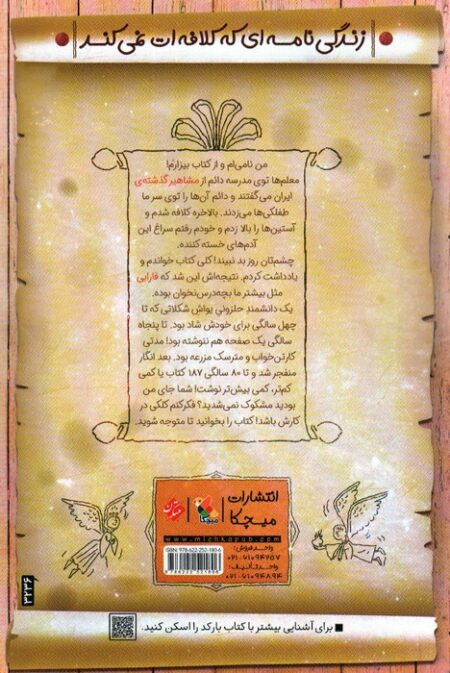 زندگی نامه ای که کلافه ات نمی کند
من نامی‌ام و از کتاب بیزارم!
معلم‌ها توی مدرسه دائم از مشاهیر گذشته‌ی
ایران می‌گفتند و دائم آن‌ها را توی سر ما
طفلکی‌ها می‌زدند. بالاخره کلافه شدم و
آستین‌ها را بالا زدم و خودم رفتم سراغ این
آدم‌های خسته کننده.
چشم‌تان روز بد نبیند! کلی کتاب خواندم و
یادداشت کردم. نتیجه‌اش این شد که فارابی
مثل بیشتر ما بچه‌درس‌نخوان بوده.
یک دانشمندِ حلزونیِ یواشِ شکلاتی که تا
چهل سالگی برای خودش شاد بود. تا پنجاه
سالگی یک صفحه هم ننوشته بود! مدتی
کارتن‌خواب و مترسک مزرعه بود. بعد انگار
منفجر شد و تا ۸۰ سالگی ۱۸۷ کتاب یا کمی
کم‌تر، کمی بیش‌تر نوشت! شما جای من
بودید مشکوک نمی‌شدید؟ فکر کنم کلکی در
کارش باشد! کتاب را بخوانید تا متوجه شوید.
انتشارات
میچکا
میچکا
www.michkapub.com
واحد فروش:
۰۲۱-۶۱۰۹۴۲۵۷
واحد تألیف:
۰۲۱-۶۱۰۹۴۸۹۴
ISBN: 978-622-252-180-6
9 786222 521806
۳۲۳۶
برای آشنایی بیشتر با کتاب بارکد را اسکن کنید.